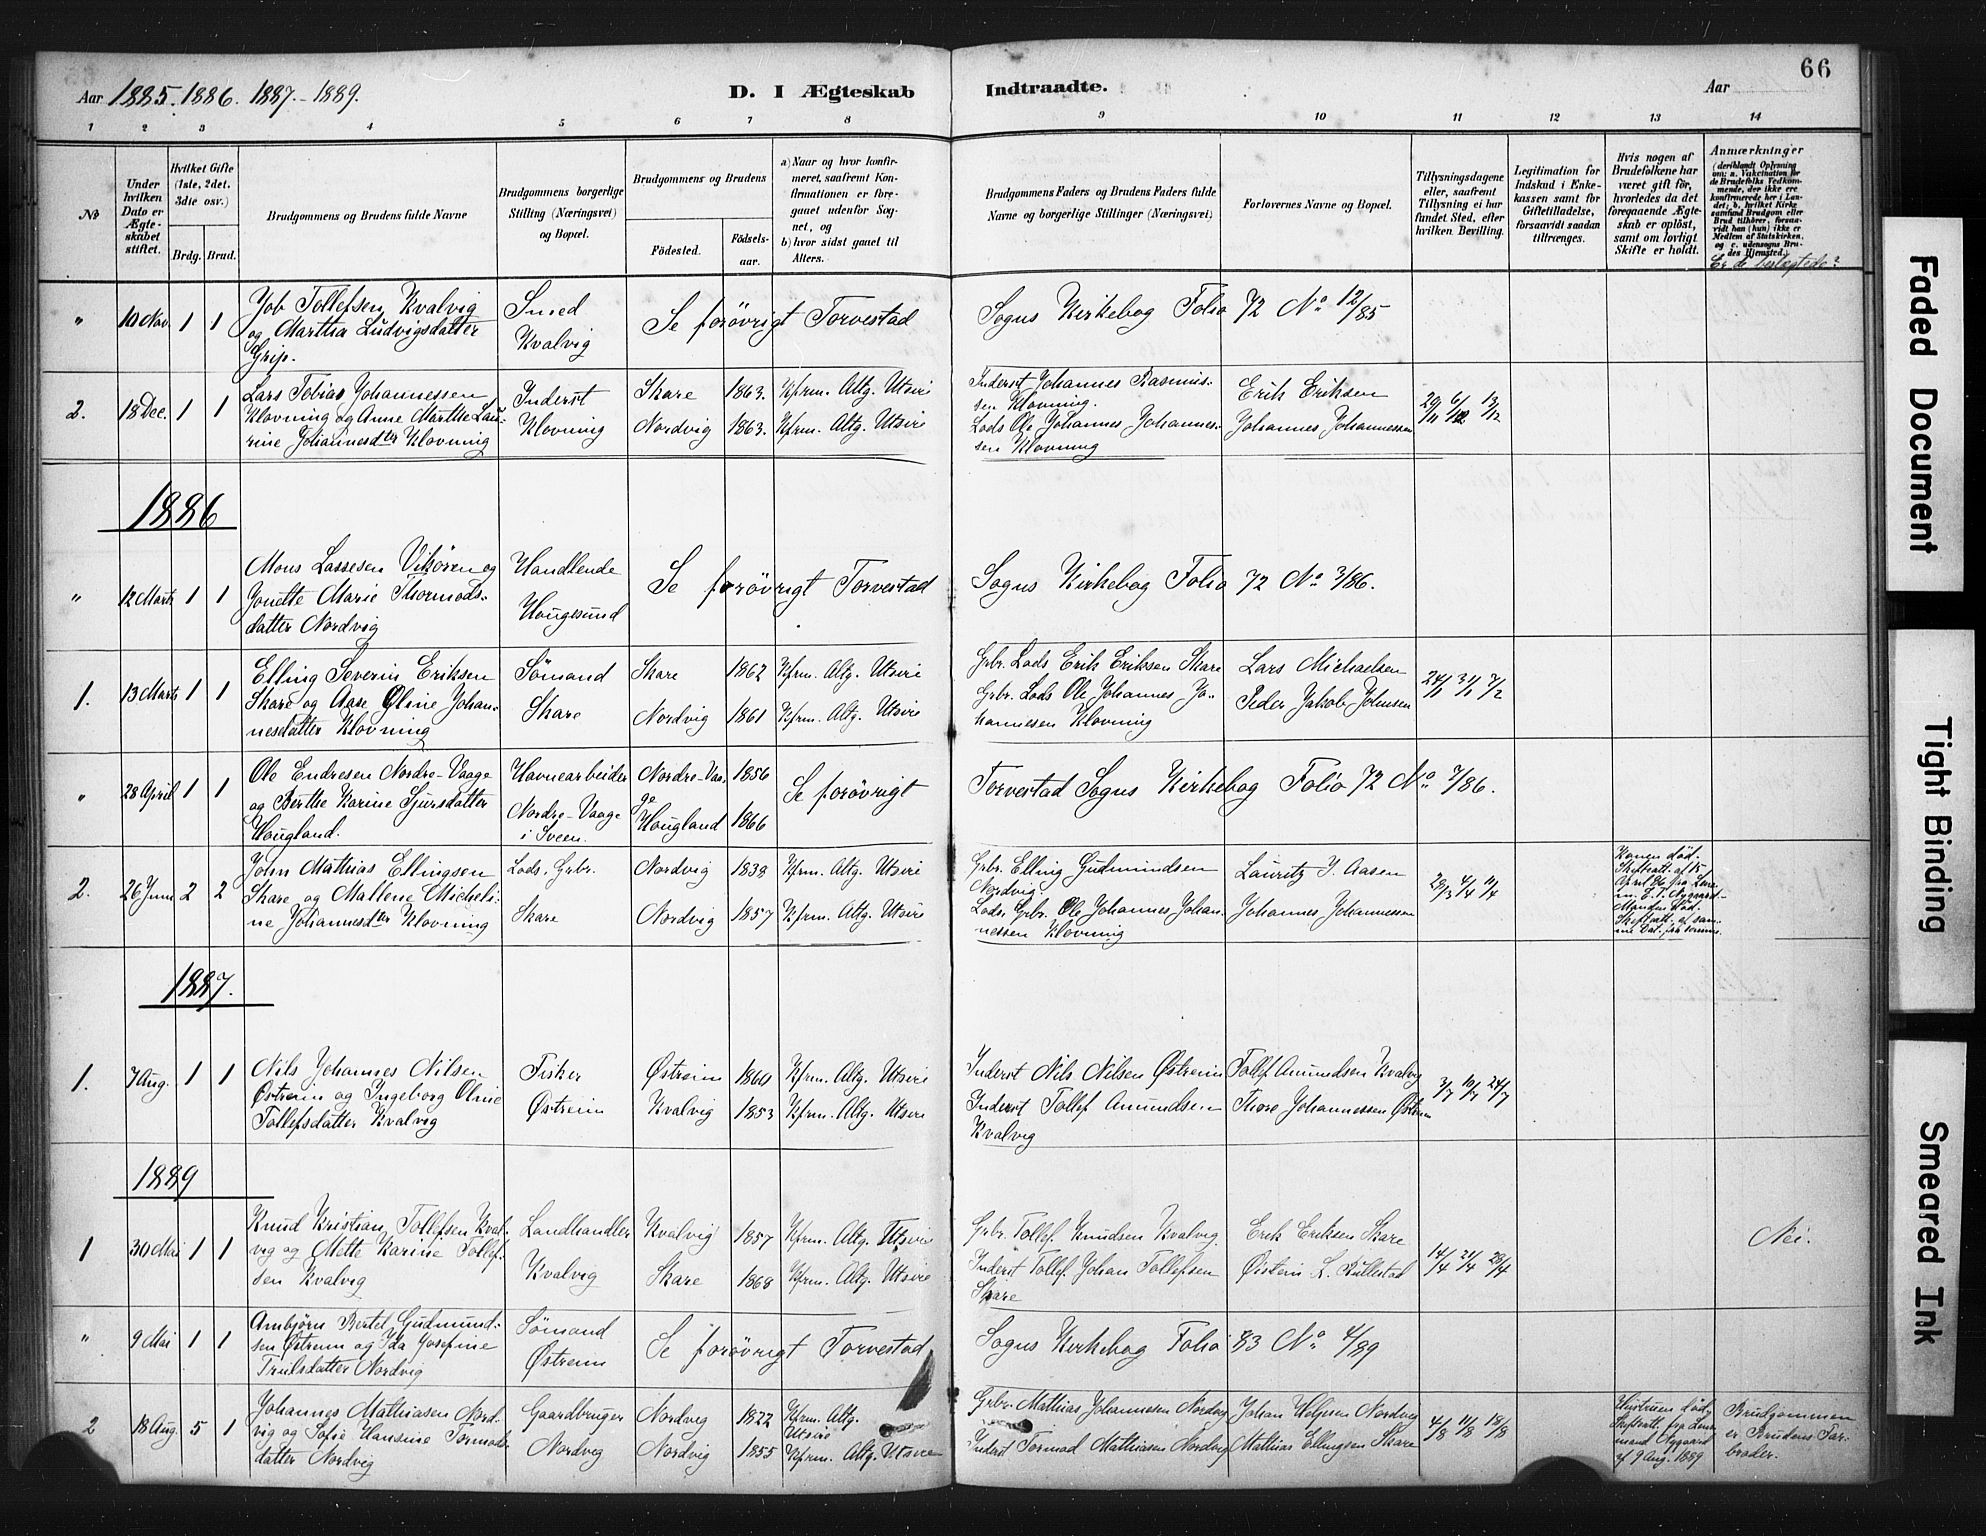 66
Aar 1885. 1886. 1887.-1889.
D. I Ægteskab Indtraadte.
Aar
1 2 3 4 5 6 7 8 9 10 11 12 13 14
No
Under hvilken Dato er Ægteskabet stiftet.
Hvilket Gifte (1ste, 2det, 3die osv.)
Brdg. Brud.
Brudgommens og Brudens fulde Navne
Brudgommens borgerlige Stilling (Næringsvei) og Bopæl.
Brudgommens og Brudens
Fødested.
Fødselsaar.
a) Naar og hvor konfirmeret, saafremt Konfirmationen er foregaaet udenfor Sognet, og
b) hvor sidst gaaet til Alters.
Brudgommens Faders og Brudens Faders fulde Navne og borgerlige Stillinger (Næringsvei)
Forlovernes Navne og Bopæl.
Tillysningsdagene eller, saafremt Tillysning ei har fundet Sted, efter hvilken Bevilling.
Legitimation for Indskud i Enkekassen samt for Giftetilladelse, forsaavidt saadan tiltrænges.
Hvis nogen af Brudefolkene har været gift før, hvorledes da det foregaaende Ægteskab er opløst, samt om lovligt Skifte er holdt.
Anmærkninger
(deriblandt Oplysning om: a. Vakcination for de Brudefolks Vedkommende, der ikke ere konfirmerede her i Landet; b. hvilket Kirkesamfund Brudgom eller Brud tilhører, forsaavidt han (hun) ikke er Medlem af Statskirken, og c. udensogns Brudes Hjemsted.)
Er de beslægtede?
" 10 Nov. 1 1
Job Tollefsen Kvalvig
og Martha Ludvigsdatter
Grip.
Smed
Kvalvig
Se forøvrigt Torvestad Sogns Kirkebog Folio 72 No 12/85
2. 18 Dec. 1 1
Lars Tobias Johannessen
Klovning og Anne Marthe Lau-
rine Johannesdtr Klovning
Inderst
Klovning
Skare 1863. Kfrm. Altg. Utsire
Nordvig 1863. Kfrm. Altg. Utsire
Inderst Johannes Rasmus-
sen Klovning.
Lods Ole Johannes Johannes-
sen Klovning
Erik Eriksen
Johannes Johannessen
29/11 6/12 13/12
1886
" 12 Marts 1 1
Mons Lassesen Vikören og
Jonette Marie Thormods-
datter Nordvig
Handlende
Hougesund
Se forövrigt Torvestad Sogns Kirkebog Folio 72 No 3/86.
1. 13 Marts 1 1
Elling Severin Eriksen
Skare og Aase Oline Johan-
nesdatter Klovning
Sömand
Skare
Skare 1862 Kfrm. Altg. Utsire
Nordvig 1861 Kfrm. Altg. Utsire
Grbr. Lods Erik Eriksen Skare
Grbr. Lods Ole Johannes Jo-
hannesen Klovning
Lars Michaelsen
Peder Jakob Johnsen
24/1 31/1 7/2
" 28 April 1 1
Ole Endresen Nordre-Vaage
og Berthe Karine Sjursdatter
Hougland.
Havnearbeider
Nordre-Vaage
i Sveen.
Nordre-Vaa-
ge 1856
Hougland 1866
Se forövrigt Torvestad Sogns Kirkebog Folio 72 No 7/86.
2. 26 Juni 2 2
John Mathias Ellingsen
Skare og Mallene Micheli-
ne Johannesdtr Klovning
Lods. Grbr.
Skare
Nordvig 1838 Kfrm. Altg. Utsire
Nordvig 1857 Kfrm. Altg. Utsire
Grbr. Elling Gudmundsen
Nordvig.
Lods. Grbr. Ole Johannes Johan-
nessen Klovning
Lauritz J. Aasen
Johannes Johannessen
28/3 4/4 11/4
Konen död.
Skifteatt. af 15
April 86 fra Lens-
Manden död.
Skifteatt. af sam-
me Dat. fra samme.
1887.
1. 7 Aug. 1 1
Nils Johannes Nilsen
Østreim og Ingeborg Oline
Tollefsdatter Kvalvig
Fisker
Østreim
Østreim 1860 Kfrm. Altg. Utsire
Kvalvig 1853 Kfrm. Altg. Utsire
Inderst Nils Nilsen Østreim
Inderst Tollef Amundsen
Kvalvig
Tollef Amundsen Kvalvig
Thore Johannessen Østreim
3/7 10/7 24/7
1889
1 30 Mai 1 1
Knud Kristian Tollefsen Kval-
vig og Mette Karine Tollef-
sen Kvalvig
Landhandler
Kvalvig
Kvalvig 1857 Kfrm. Altg. Utsire
Skare 1868 Kfrm. Altg. Utsire
Grbr. Tollef Knudsen Kvalvig.
Inderst Tollef Johan Tollefsen
Skare
Erik Eriksen Skare
Østein L. Rullestad
14/4 21/4 28/4
Nei.
" 9 Mai 1 1
Ambjörn Bertel Gudmund-
sen Østreim og Ida Josefine
Trulsdatter Nordvig
Sömand
Østreim
Se forövrigt Torvestad Sogns Kirkebog Folio 83 No 4/89
2 18 Aug. 5 1
Johannes Mathiasen Nord-
vig og Sofie Hansine Tormods-
datter Nordvig
Gaardbruger
Nordvig
Nordvig 1822 Kfrm. Altg.
Utsire
Nordvig 1855 Kfrm. Altg. Utsire
Grbr. Mathias Johannesen Nordvig
Inderst Tormod Mathiasen Nordvig
Johan Helgesen Nordvig
Mathias Ellingsen Skare
4/8 11/8 18/8
Hustruen död,
Skifteatt. fra Lens-
mand Nygaard
af 9 Aug. 1889
Brudgommen
er Brudens Far-
broder.
Faded Document
Tight Binding
Smeared Ink